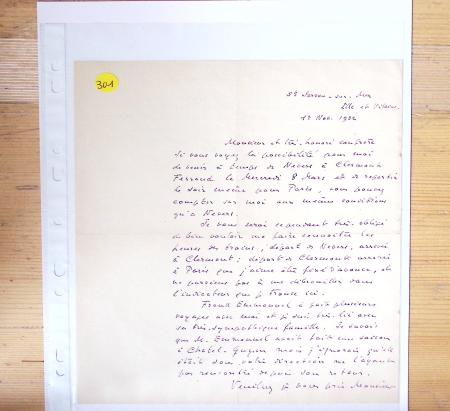 301
St Servan-sur-Mer
Ille et Vilaine
18 Nov. 1922
Monsieur et très honoré confrère
Si vous voyez la possibilité pour moi
de venir à temps de Nevers à Clermont
Ferrand le Mercredi 8 Mars et de repartir
le soir même pour Paris, vous pouvez
compter sur moi aux mêmes conditions
qu'à Nevers.
Je vous serai cependant très obligé
de bien vouloir me faire connaître les
heures des trains, départ de Nevers, arrivée
à Clermont; départ de Clermont arrivée
à Paris car j'aime être fixé d'avance, et
ne parviens pas à me débrouiller dans
l'indicateur que je trouve ici.
Frank Emmanuel a fait plusieurs
voyages avec moi et je suis très lié avec
sa très sympathique famille. Je savais
que M. Emmanuel avait fait une saison
à Chatel-Guyon mais j'ignorais qu'elle
était sous votre direction ne l'ayant
pas rencontré depuis son retour.
Veuillez je vous prie Monsieur